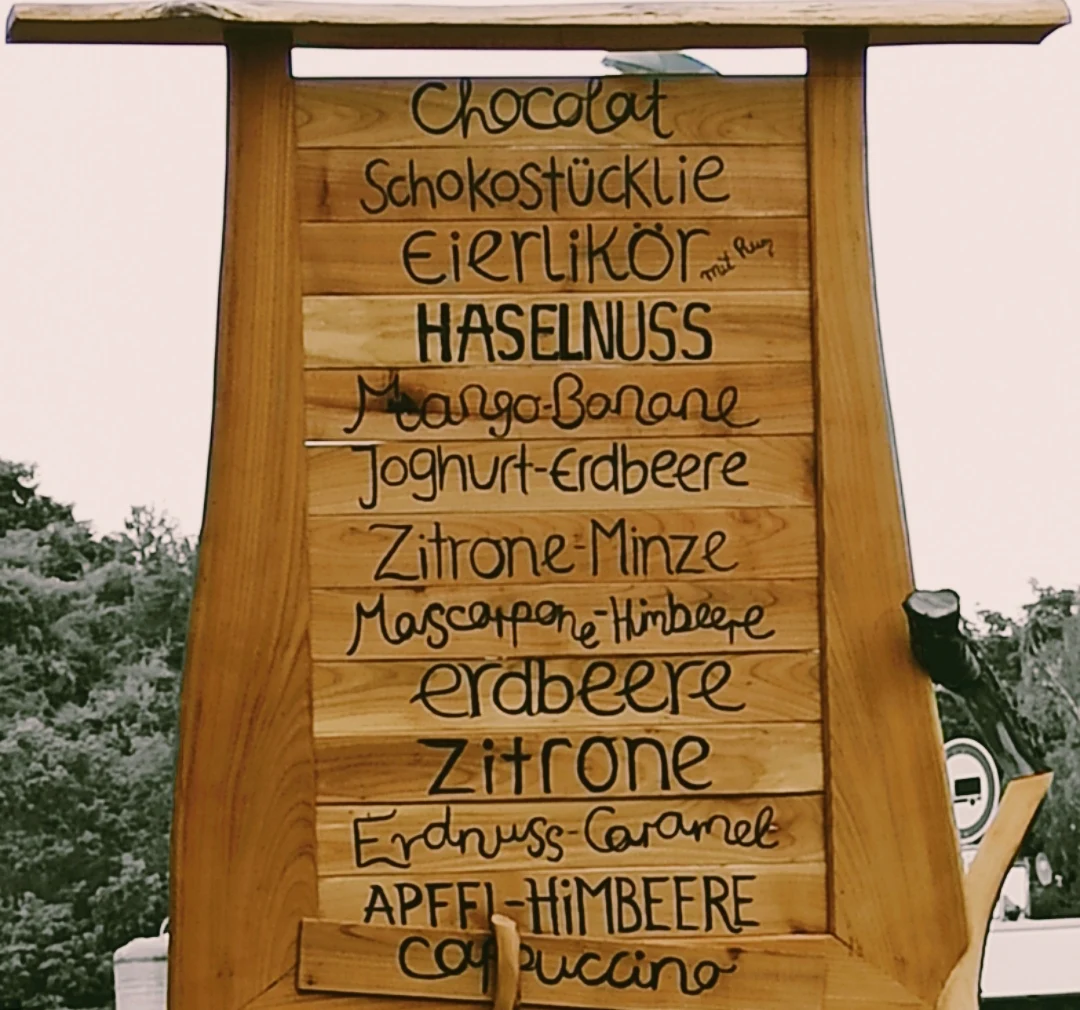 Chocolat
Schokostücklie
Eierlikör mit Rum
HASELNUSS
Mango-Banane
Joghurt-Erdbeere
Zitrone-Minze
Mascarpone-Himbeere
erdbeere
Zitrone
Erdnuss-Caramel
APFEL-HiMBEERE
Cappuccino